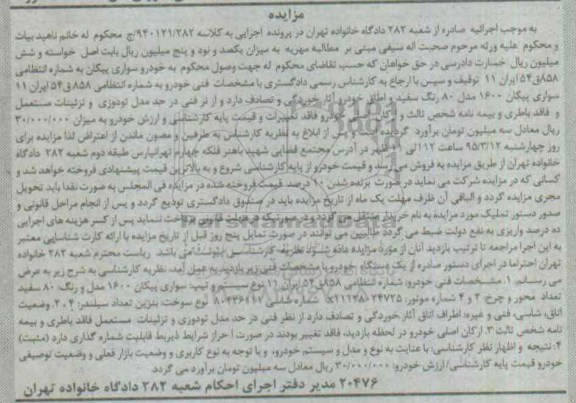 مزایده
به موجب اجرائیه صادره از شعبه ۲۸۲ دادگاه خانواده تهران در پرونده اجرایی به کلاسه ۹۴۰۱۲۱/۲۸۲/ج محکوم له خانم ناهید بیات
و محکوم علیه ورثه مرحوم صحبت اله سیفی مبنی بر مطالبه مهریه به میزان یکصد و نود و پنج میلیون ریال بابت اصل خواسته و شش
میلیون ریال خسارت دادرسی در حق خواهان که حسب تقاضای محکوم له جهت وصول محکوم به خودرو سواری پیکان به شماره انتظامی
۸۵۸ق۵۴ ایران ۱۱ توقیف و سپس با ارجاع به کارشناس رسمی دادگستری با مشخصات فنی خودرو به شماره انتظامی ۸۵۸ق۵۴ ایران ۱۱
سواری پیکان ۱۶۰۰ مدل ۸۰ رنگ سفید و اطاق خودرو آثار خوردگی و تصادف دارد و از نر فنی در حد مدل تودوزی و تزئینات مستعمل
و فاقد باطری و بیمه نامه شخص ثالث و ارکان اصلی خودرو فاقد تغییرات و قیمت پایه کارشناسی و ارزش خودرو به میزان ۳۰/۰۰۰/۰۰۰
ریال معادل سه میلیون تومان برآورد گردیده است پس از ابلاغ به نظریه کارشناس به طرفین و مصون ماندن از اعتراض لذا مزایده برای
روز چهارشنبه ۹۵/۳/۱۲ ساعت ۱۱ الی ۱۲ ظهر در آدرس مجتمع قضایی شهید باهنر فلکه چهارم تهرانپارس طبقه دوم شعبه ۲۸۲ دادگاه
خانواده تهران از طریق مزایده به فروش می رسد و قیمت خودرو از پایه کارشناسی شروع و به بالاترین قیمت پیشنهادی فروخته خواهد شد و
کسانی که در مزایده شرکت می نماید در صورت برنده شدن ۱۰ درصد قیمت فروخته شده در مزایده فی المجلس به صورت نقدا باید تحویل
مجری مزایده گردد و الباقی آن ظرف مهلت یک ماه از تاریخ مزایده باید در صندوق دادگستری تودیع گردد و پس از انجام مراحل قانونی و
صدور دستور تملیک مورد مزایده به نام خریدار منتقل می گردد و در صورتیکه در مهلت قانونی پرداخت ننماید پس از کسر هزینه های اجرایی
ده درصد واریزی به نفع دولت ضبط می گردد طالبین می توانند در صورت تمایل پنج روز قبل از تاریخ مزایده با ارائه کارت شناسایی معتبر
به این اجرا مراجعه تا ترتیب بازدید آنان از مورد مزایده داده شود نظریه کارشناسی پیوست می باشد. ریاست محترم شعبه ۲۸۲ خانواده
تهران احتراما در اجرای دستور صادره از یک دستگاه خودرو با مشخصات فنی زیر بازدید به عمل آمد، نظریه کارشناسی به شرح زیر به عرض
می رسانم. ۱. مشخصات فنی خودرو: شماره انتظامی ۸۵۸ق۵۴ ایران ۱۱ نوع سیستم و تیپ: سواری پیکان ۱۶۰۰ مدل و رنگ: ۸۰ سفید
تعداد محور و چرخ: ۲ و ۴ شماره موتور: شماره شاسی: نوع سوخت بنزین تعداد سیلندر: ۴. ۲. وضعیت
اتاق، شاسی، فنی و غیره: اطراف اتاق آثار خوردگی و تصادف دارد از نظر فنی در حد مدل تودوزی و تزئینات: مستعمل فاقد باطری و بیمه
نامه شخص ثالث ۳. ارکان اصلی خودرو در لحظه بازدید، فاقد تغییر بودند در صورت احراز شرایط ذیربط قابلیت شماره گذاری دارد (مثبت)
۴. نتیجه و اظهار نظر کارشناسی: با عنایت به نوع و مدل و سیستم خودرو، و با توجه به نوع کاربری و وضعیت بازار فعلی و وضعیت توصیفی
خودرو قیمت پایه کارشناسی/ ارزش خودرو: ۳۰/۰۰۰/۰۰۰ ریال معادل سه میلیون تومان برآورد می گردد.
۲۰۴۷۶ مدیر دفتر اجرای احکام شعبه ۲۸۲ دادگاه خانواده تهران